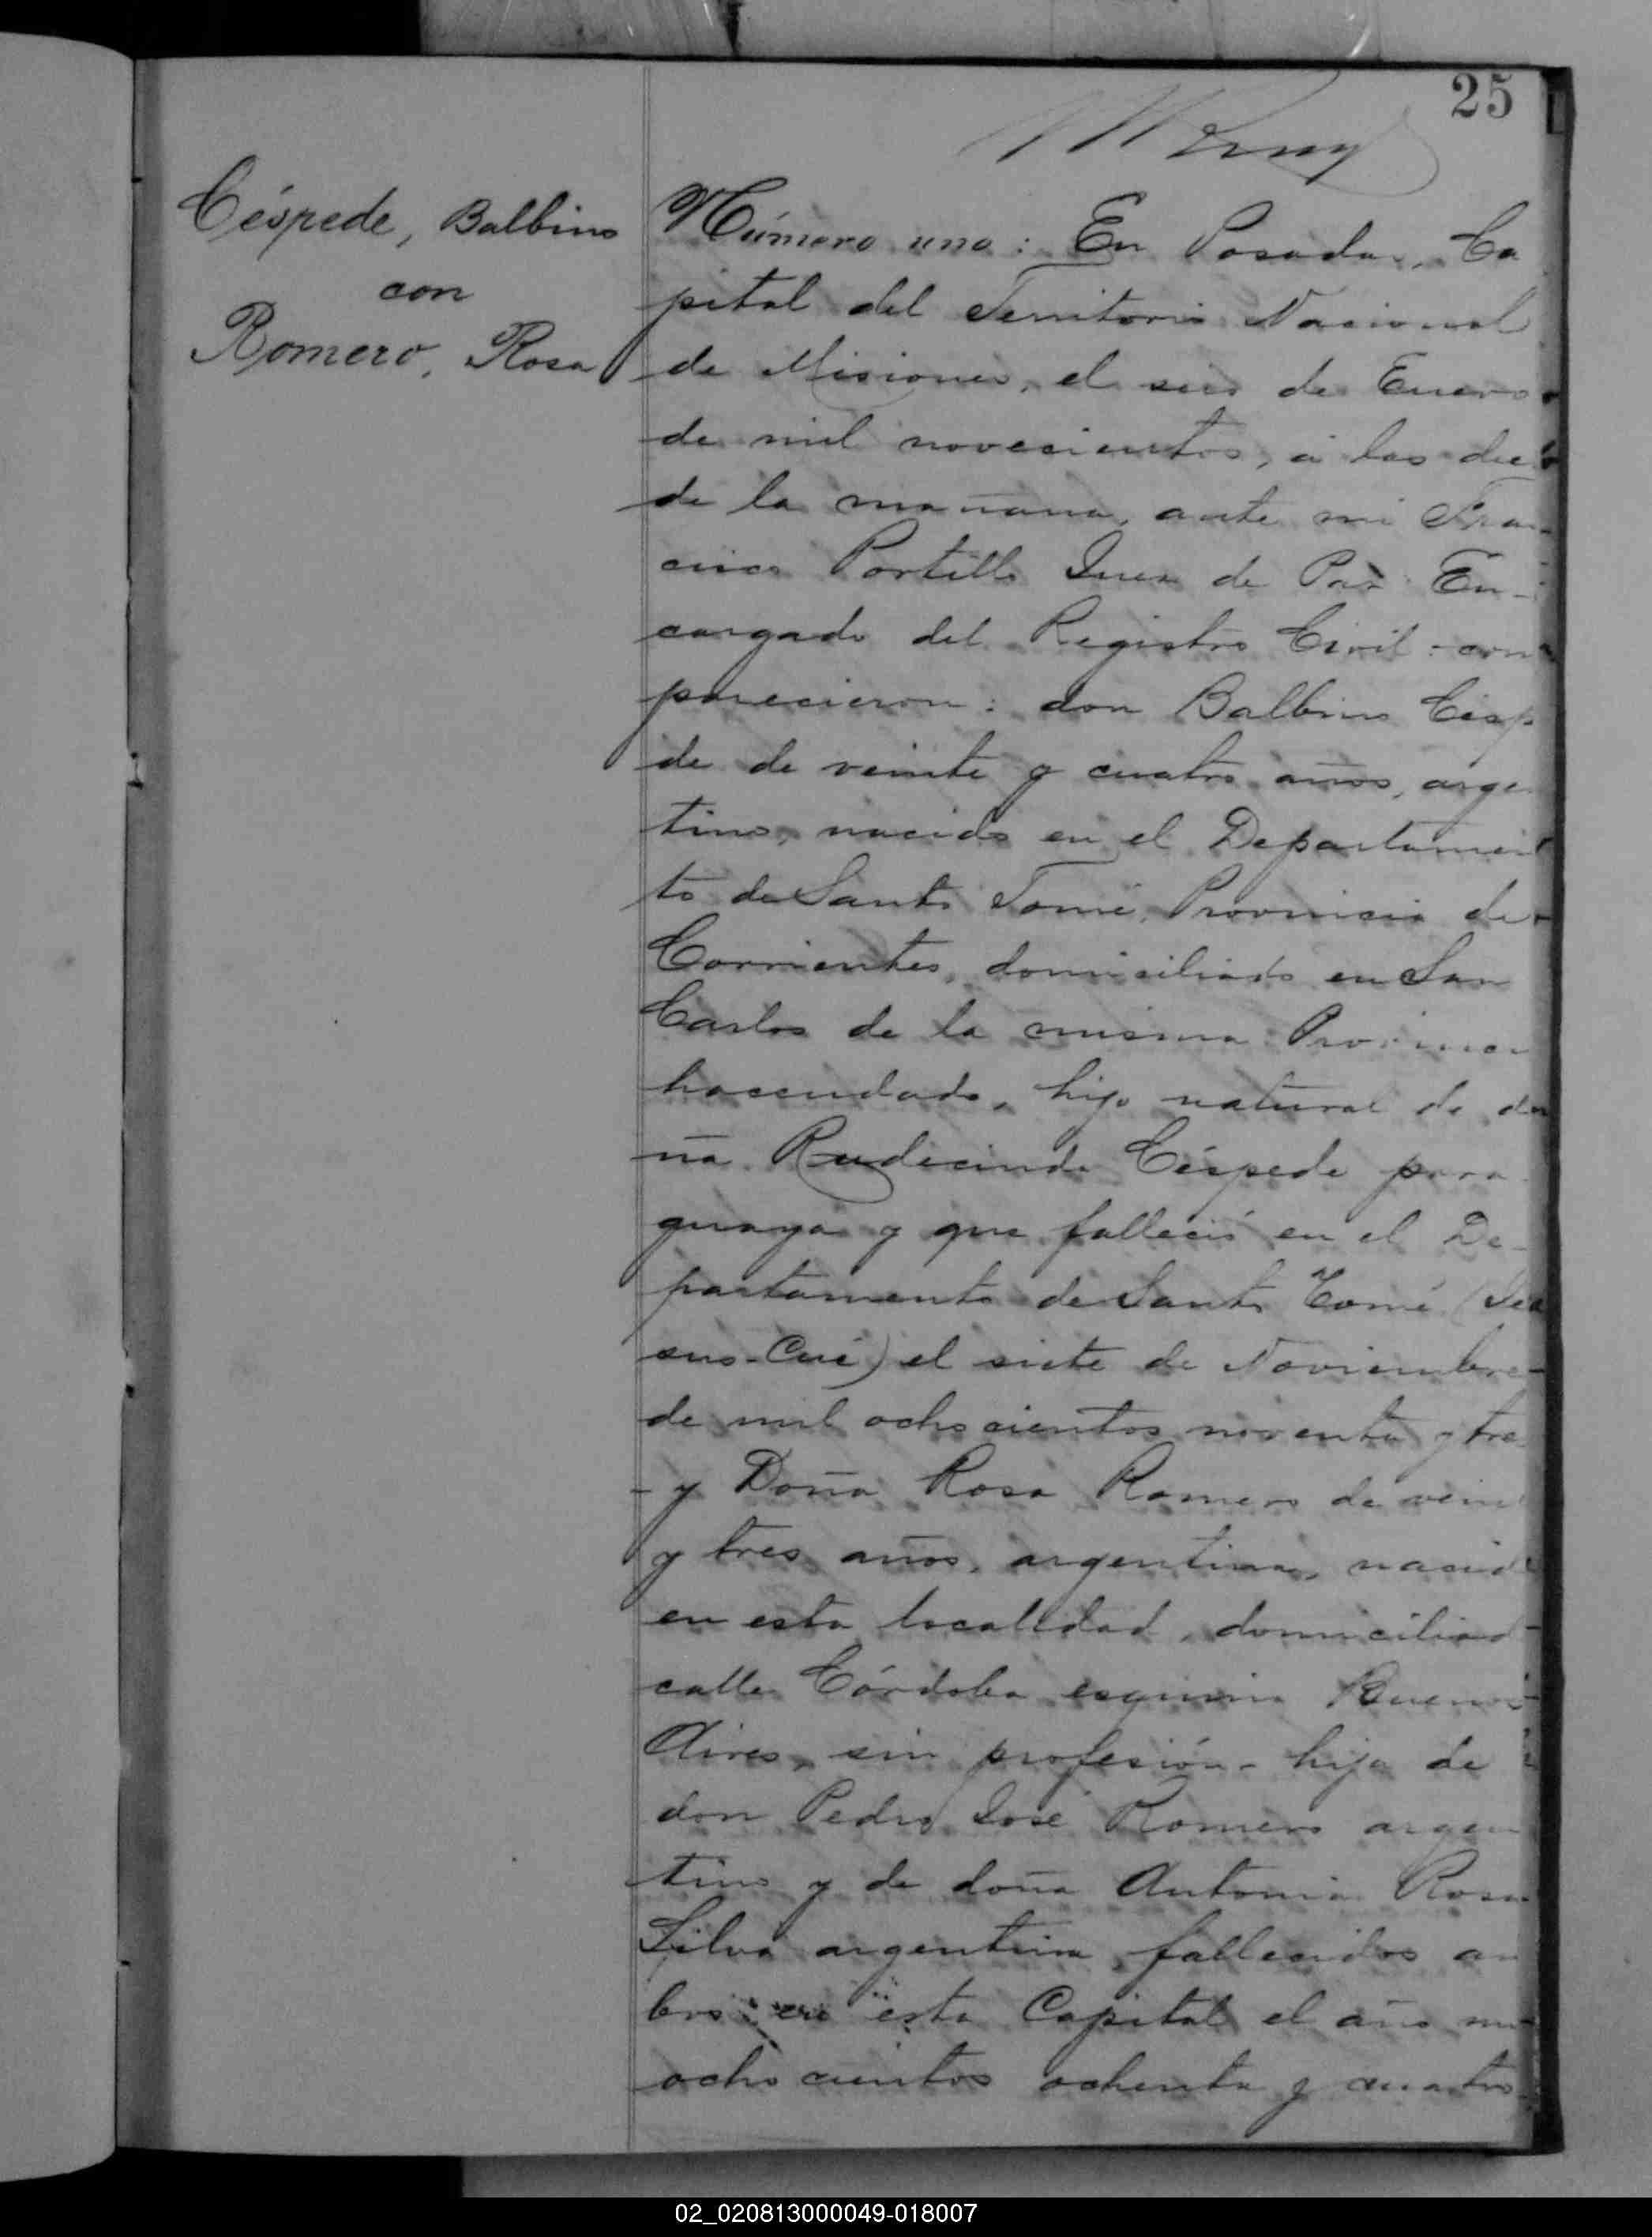 25
Céspede, Balbino
con
Romero, Rosa
Número uno: En Posadas, Ca
pital del Territorio Nacional
de Misiones, el seis de Enero
de mil novecientos, á las diez
de la mañana, ante mi Fran
cisco Portillo Juez de Paz En-
cargado del Registro Civil: com
parecieron: don Balbino Césp
de de veinte y cuatro años, argen
tino, nacido en el Departamen
to de Santo Tomé, Provincia de
Corrientes, domiciliado en San
Carlos de la misma Provincia
hacendado, hijo natural de do
ña Rudecinda Céspede para
guaya y que falleció en el De-
partamento de Santo Tomé (
sus-Cué) el siete de Noviembre
de mil ochocientos noventa y tres
- y Doña Rosa Romero de veinte
y tres años, argentina, nacida
en esta localidad, domiciliada
calle Córdoba esquina Buenos
Aires, sin profesión - hija de
don Pedro José Romero argen
tino y de doña Antonia Rosa
Silva argentina, fallecidos am
bos en esta Capital el año mil
ochocientos ochenta y cuatro
02_020813000049-018007